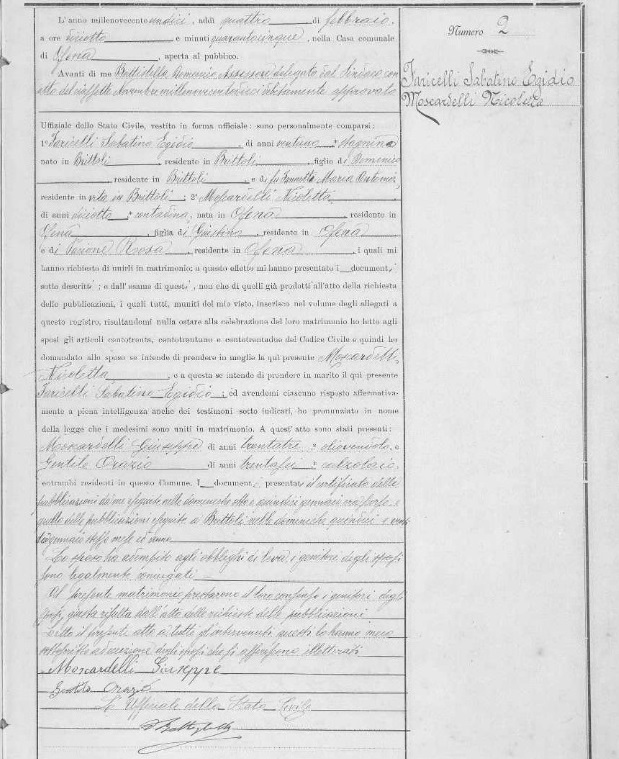 Numero 2
Faricelli Sabatino Egidio
Moscardelli Nicoletta
L'anno millenovecento undici, addì quattro di febbraio,
a ore diciotto e minuti quarantacinque, nella Casa comunale
di Ofena, aperta al pubblico.
Avanti di me Domenico Assessore delegato dal Sindaco con
atto del sette Novembre debitamente approvato
Uffiziale dello Stato Civile, vestito in forma ufficiale: sono personalmente comparsi:
1° Faricelli Sabatino Egidio, di anni
nato in Brittoli, residente in Brittoli, figlio di Domenico
, residente in Brittoli e di fu Maria Antonia,
residente in vita in Brittoli; 2° Moscardelli Nicoletta,
di anni diciotto, contadina, nata in Ofena, residente in
Ofena, figlia di Giustino, residente in Ofena
e di Rosa, residente in Ofena, i quali mi
hanno richiesto di unirli in matrimonio; a questo effetto mi hanno presentato i document
sotto descritti; e dall'esame di questi, non che di quelli già prodotti all'atto della richiesta
delle pubblicazioni, i quali tutti, muniti del mio visto, inserisco nel volume degli allegati a
questo registro, risultandomi nulla ostare alla celebrazione del loro matrimonio ho letto agli
sposi gli articoli centotrenta, centotrentuno e centotrentadue del Codice Civile e quindi ho
domandato allo sposo se intende di prendere in moglie la qui presente Moscardelli
Nicoletta, e a questa se intende di prendere in marito il qui presente
Faricelli Sabatino Egidio; ed avendomi ciascuno risposto affermativamente
a piena intelligenza anche dei testimoni sotto indicati, ho pronunziato in nome
della legge che i medesimi sono uniti in matrimonio. A quest'atto sono stati presenti:
Moscardelli Giuseppe di anni trentatre, e
Gentile Orazio di anni trentasei, calzolaio,
entrambi residenti in questo Comune. I document presentati il certificato delle
pubblicazioni da me eseguite nelle domeniche otto e quindici gennaio
quello delle pubblicazioni eseguite a Brittoli nelle domeniche quindici e
gennaio stesso mese ed anno.
Lo sposo ha adempito agli obblighi di leva, i genitori degli sposi
sono legalmente coniugati
Al presente matrimonio prestarono il loro consenso i genitori degli
sposi, giusta risulta dall'atto della richiesta delle pubblicazioni.
Letto il presente atto a tutti gl'intervenuti questi lo hanno meco
sottoscritto ad eccezione degli sposi che illetterati
Moscardelli Giuseppe
Orazio
L'Uffiziale dello Stato Civile